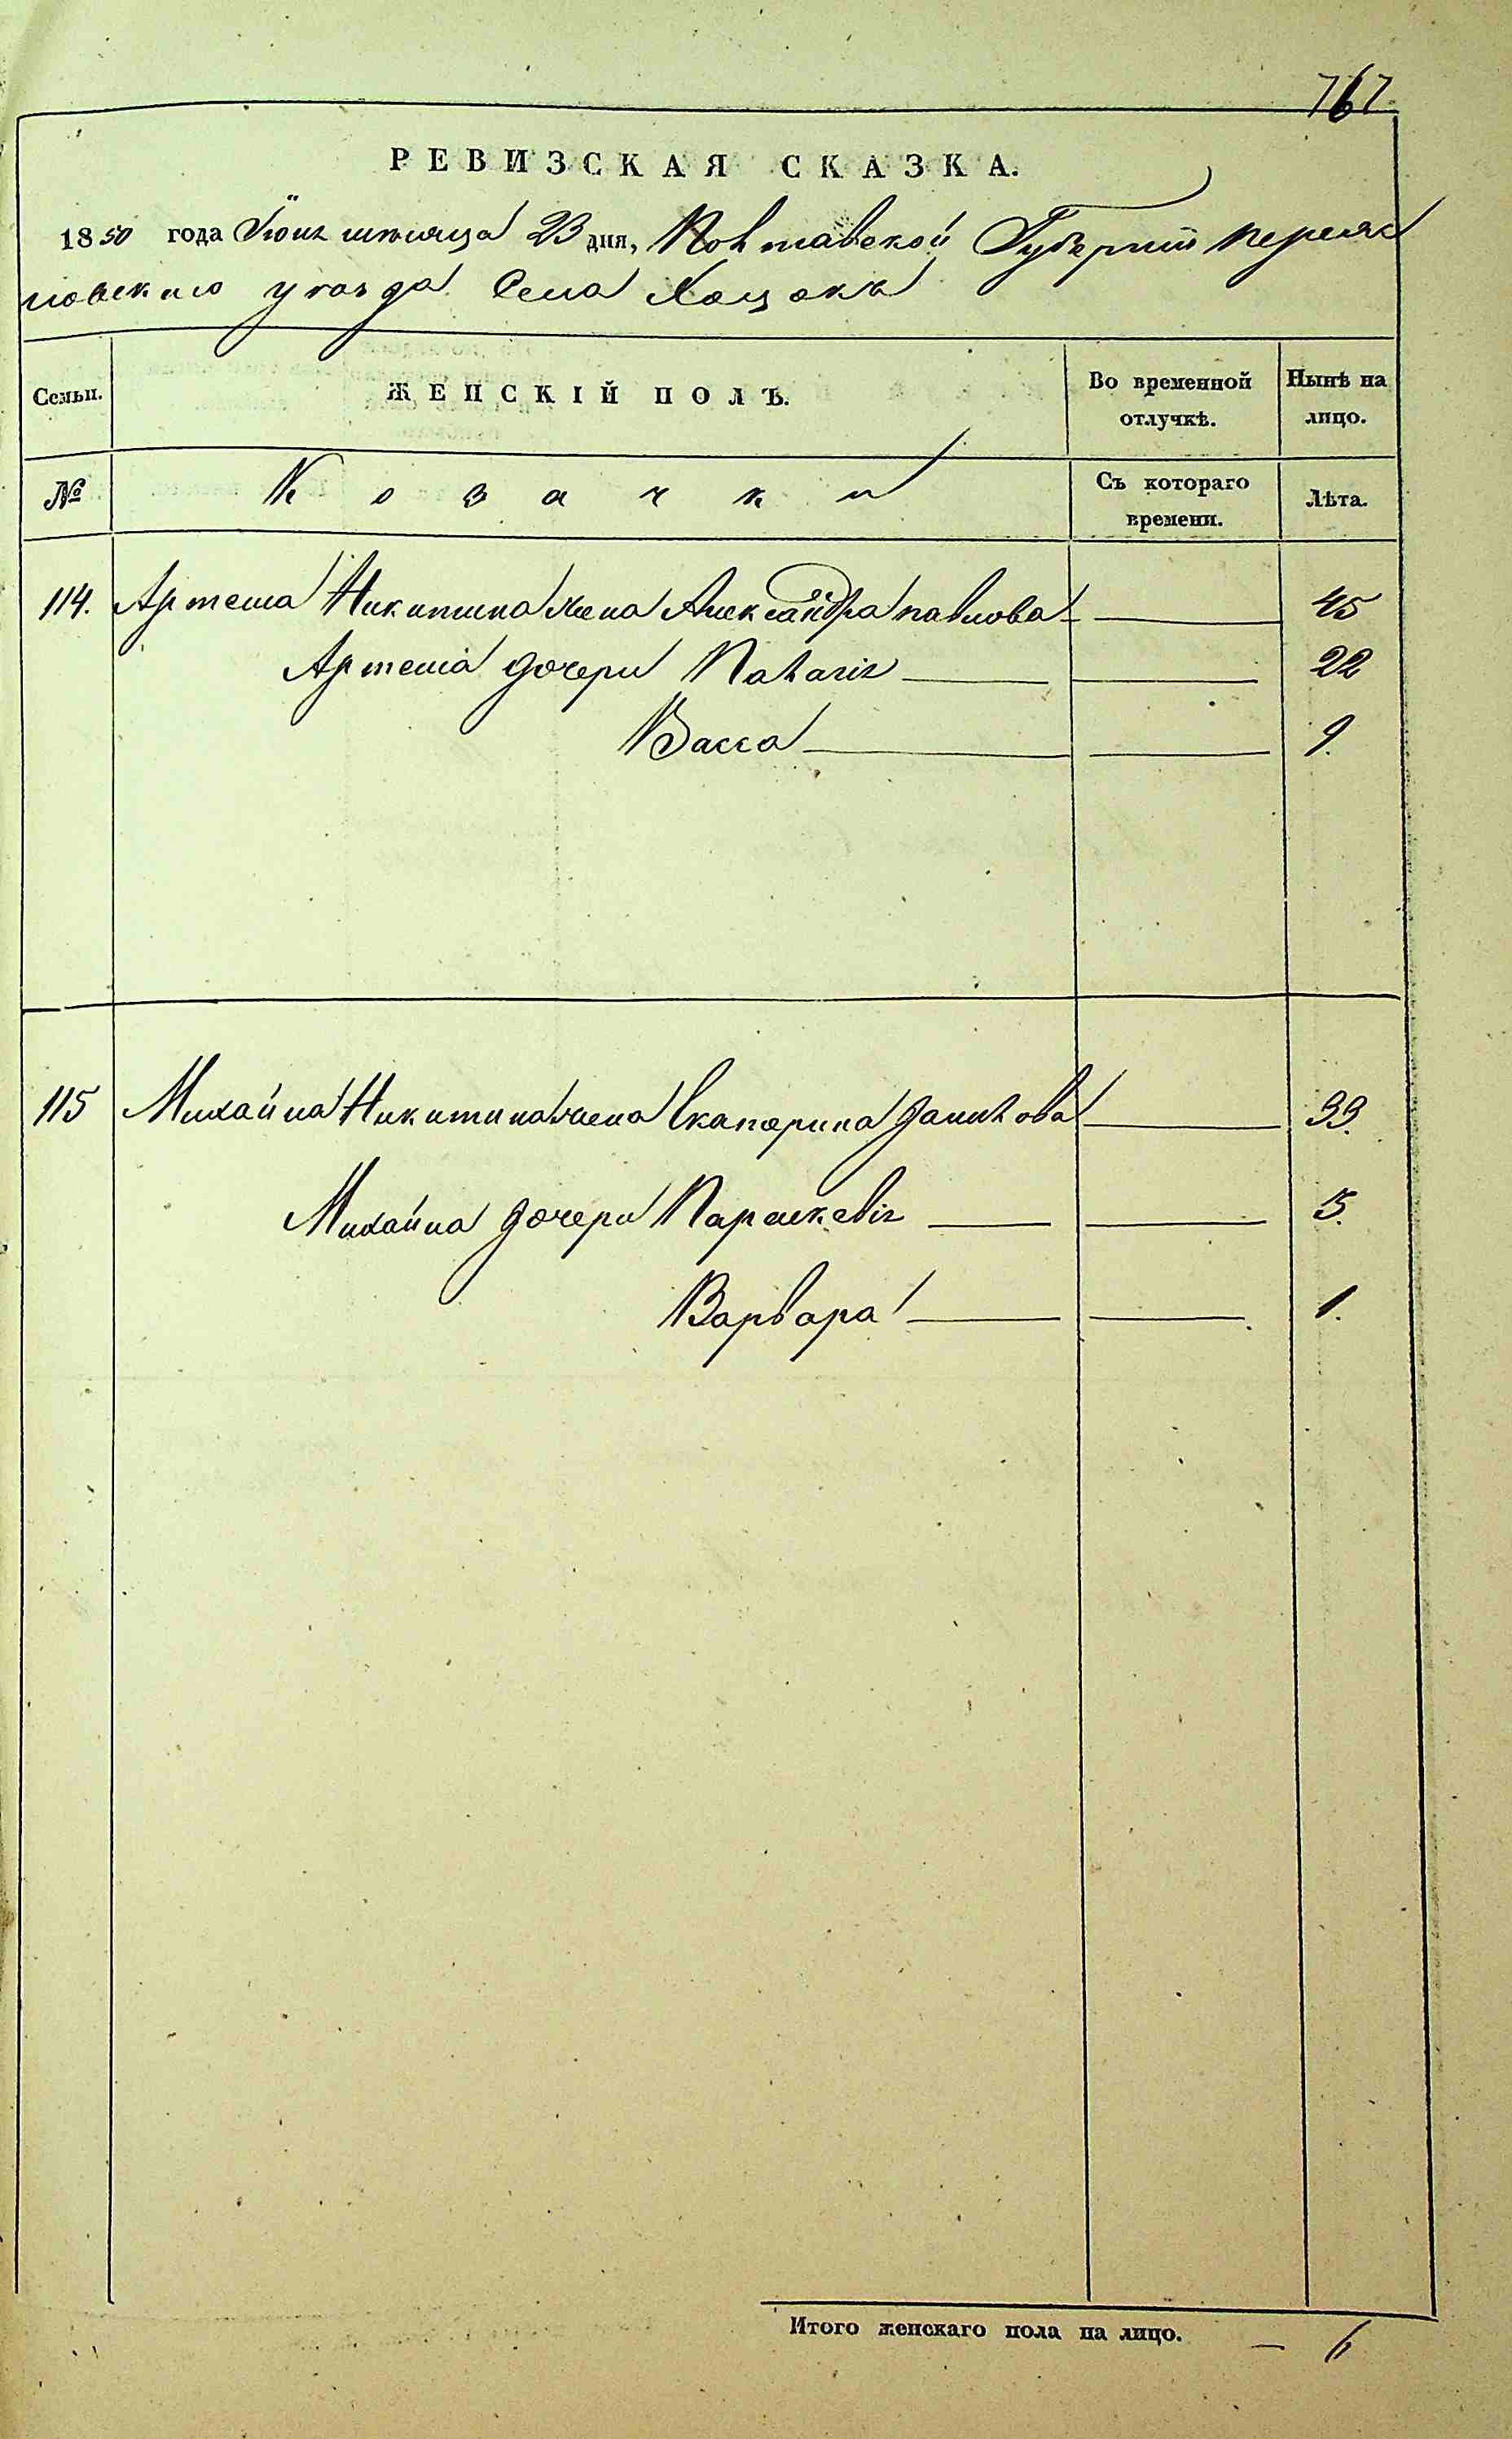 767
РЕВИЗСКАЯ СКАЗКА.
1850 года Июня месяца 23 дня, Полтавской Губернии Переяс
ловского уезда Села Хоцокъ
Семьи. ЖЕНСКІЙ ПОЛЪ. Во временной отлучкѣ. Нынѣ на лицо.
№ Козачки Съ котораго времени. Лѣта.
114. Артема Никитина жена Александра павлова 45
Артема дочери Наталія 22
Васса 9.
115 Михайла Никитина жена Екатерина Данилова 39.
Михайла дочери Параскевія 5.
Варвара 1.
Итого женскаго пола на лицо. — 6